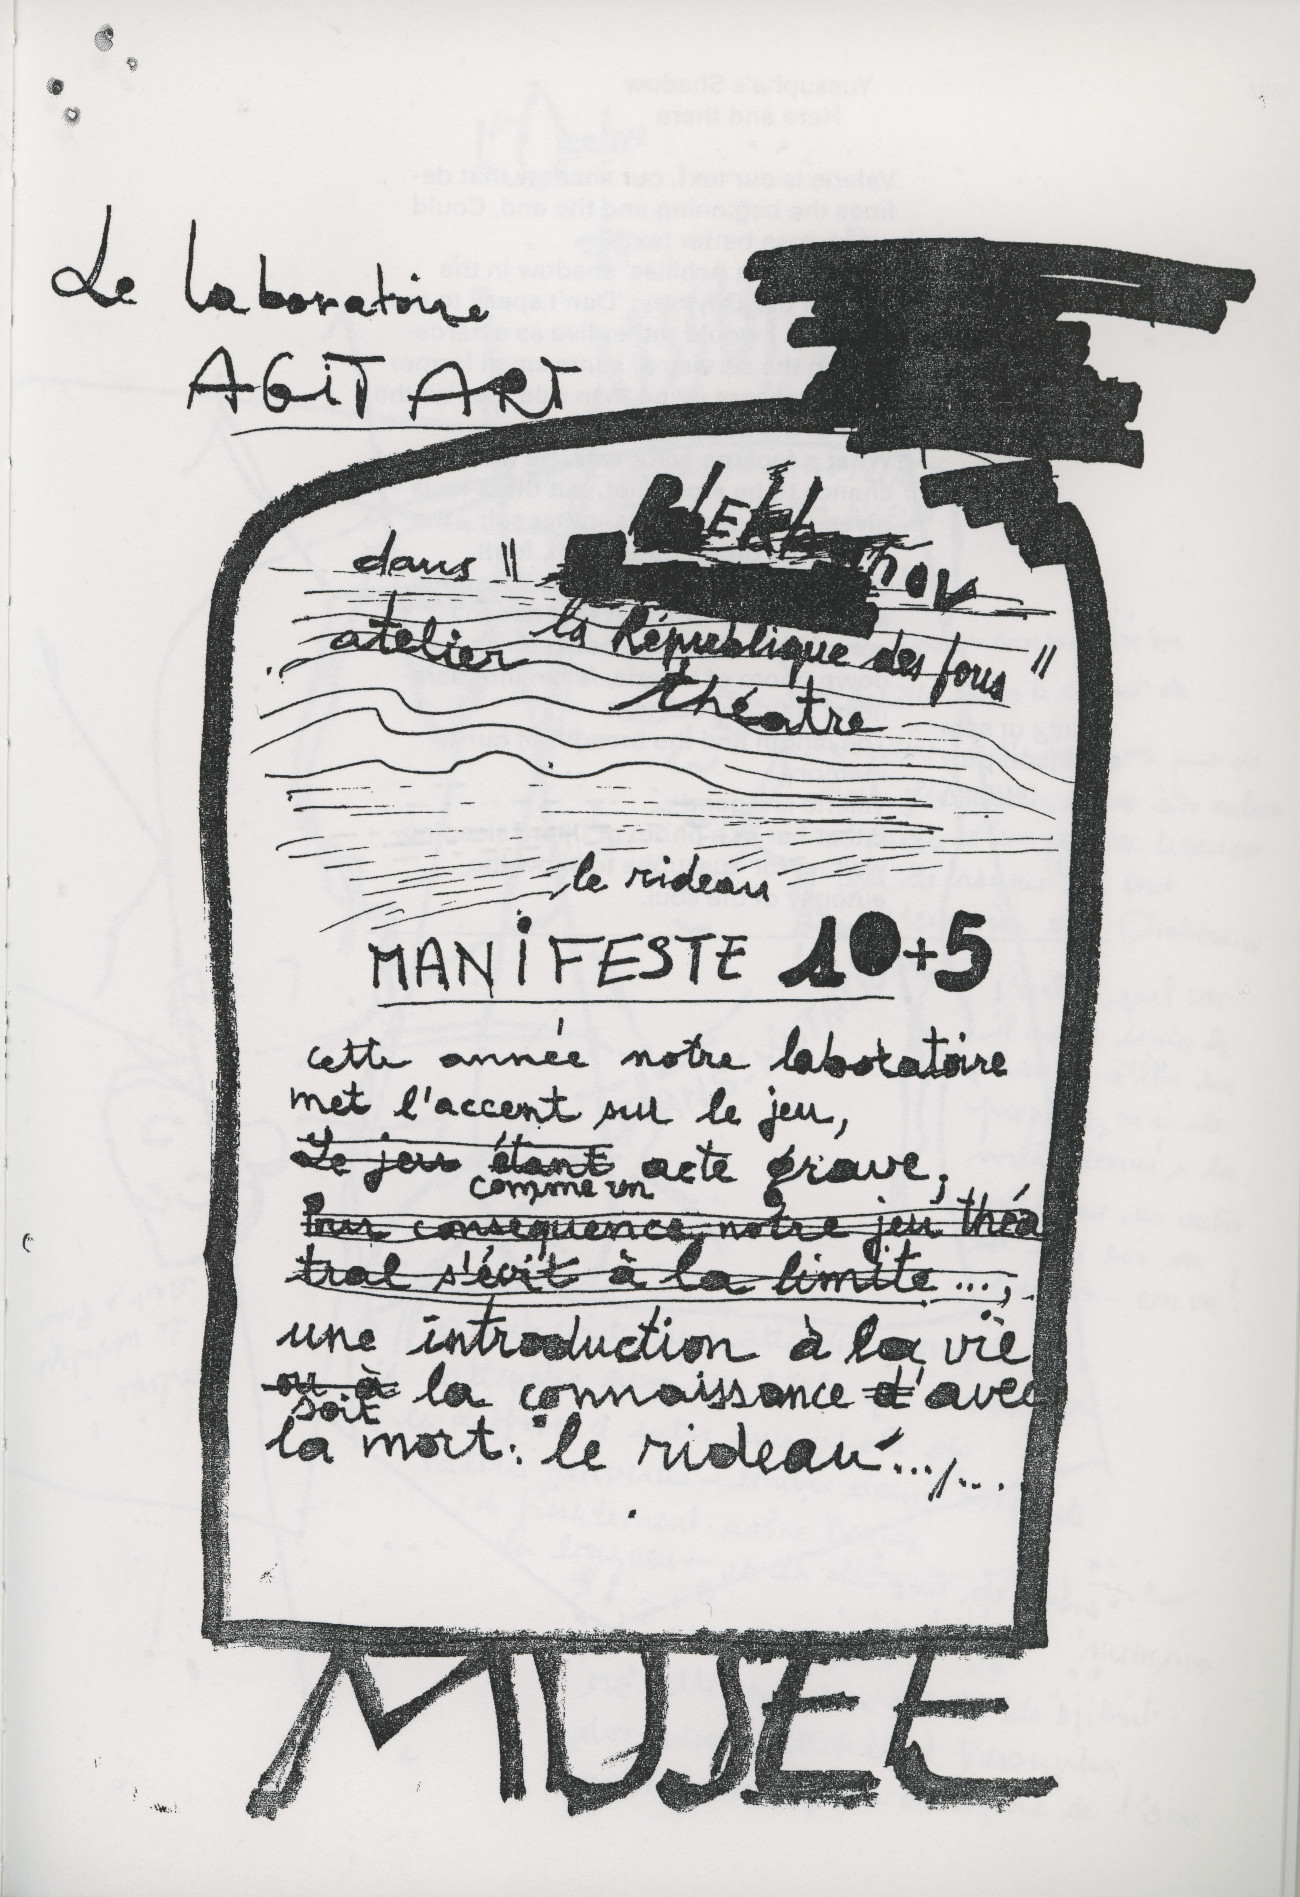 Le laboratoire
AGIT ART
dans "
atelier la République des fous "
théatre
le rideau
MANIFESTE 10+5
cette année notre laboratoire
met l'accent sur le jeu,
Le jeu étant acte grave,
comme un
consequence, notre jeu théa
tral s'écrit à la limite...,
une introduction à la vie
ou à la connaissance d'avec
soit
la mort: le rideau.../...
MUSEE